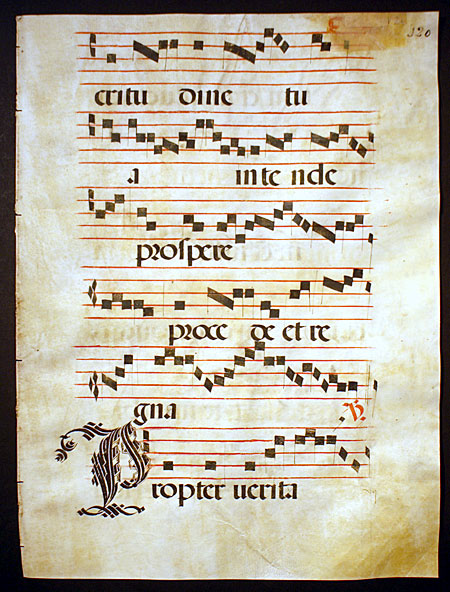 120
critu dine tu
a inte nde
prospere
proce de et re
gna ℣.
Propter uerita